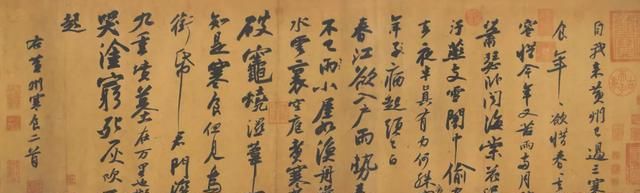 自我來黃州已過三寒
食年〻欲惜春
容惜今年又苦雨兩月
蕭瑟臥聞海棠花
汙燕支雪闇中偷
去夜半真有力何殊
年子病起頭已白
春江欲入戶雨勢
不已雨小屋如漁舟
水雲裏空庖煮寒
破竈燒濕葦
知是寒食但見烏
銜帋君門深
九重墳墓在万里也
哭塗窮死灰吹
起
右黃州寒食二首